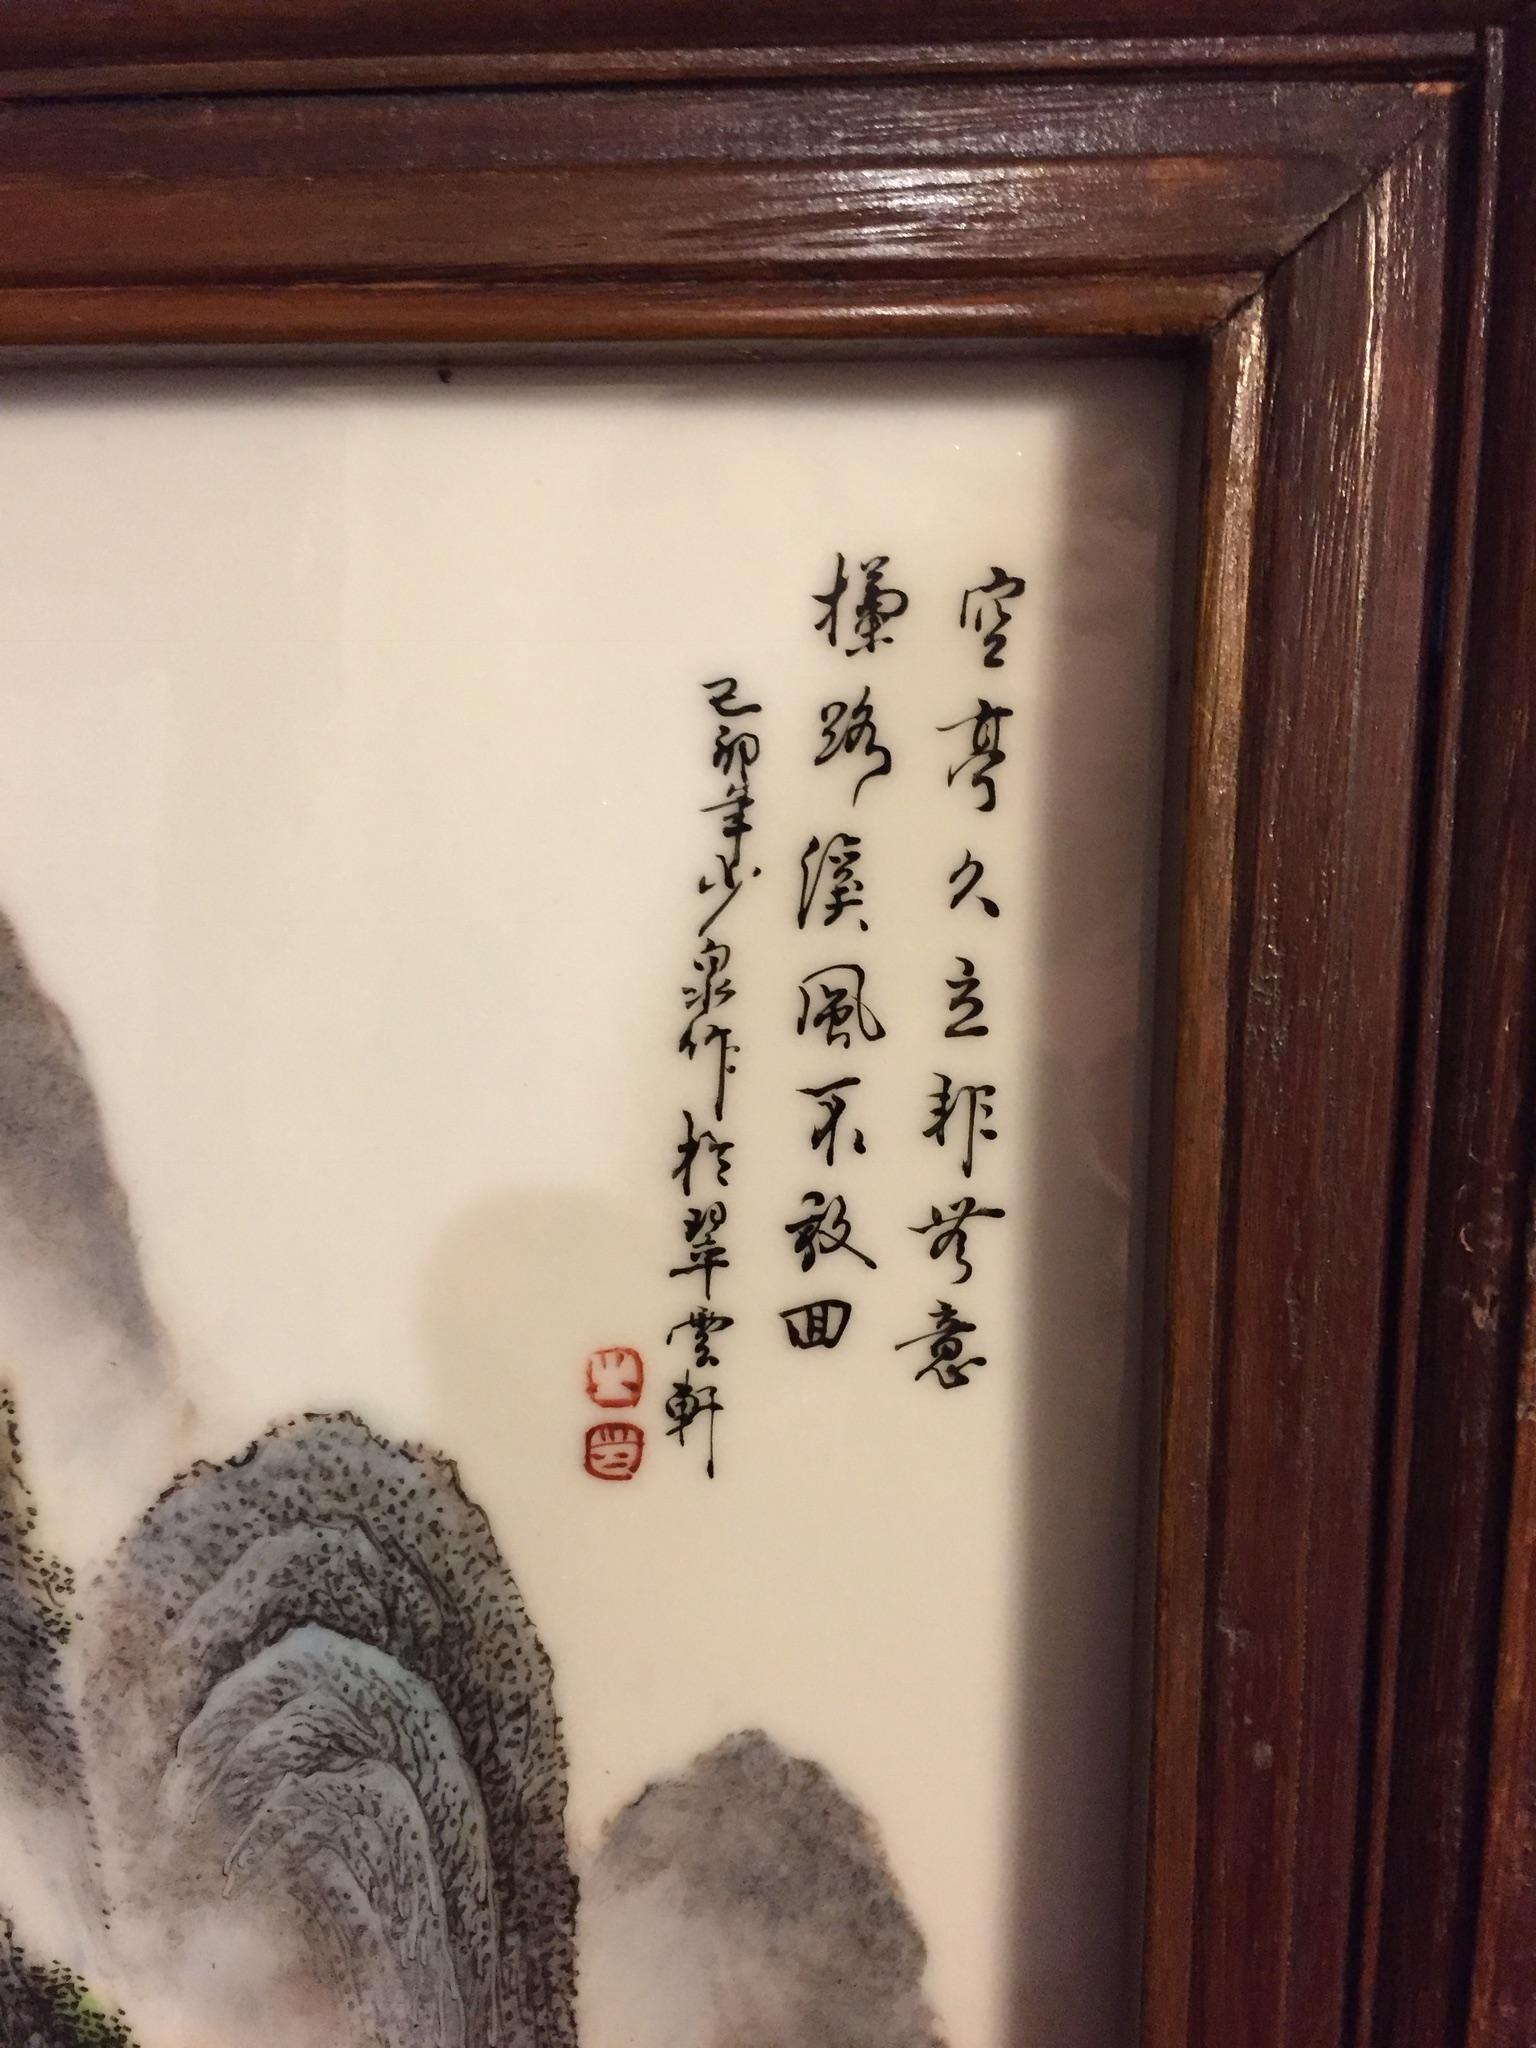 空亭久立非無意
攔路溪風不敢回
己卯年少泉作於翠雲軒